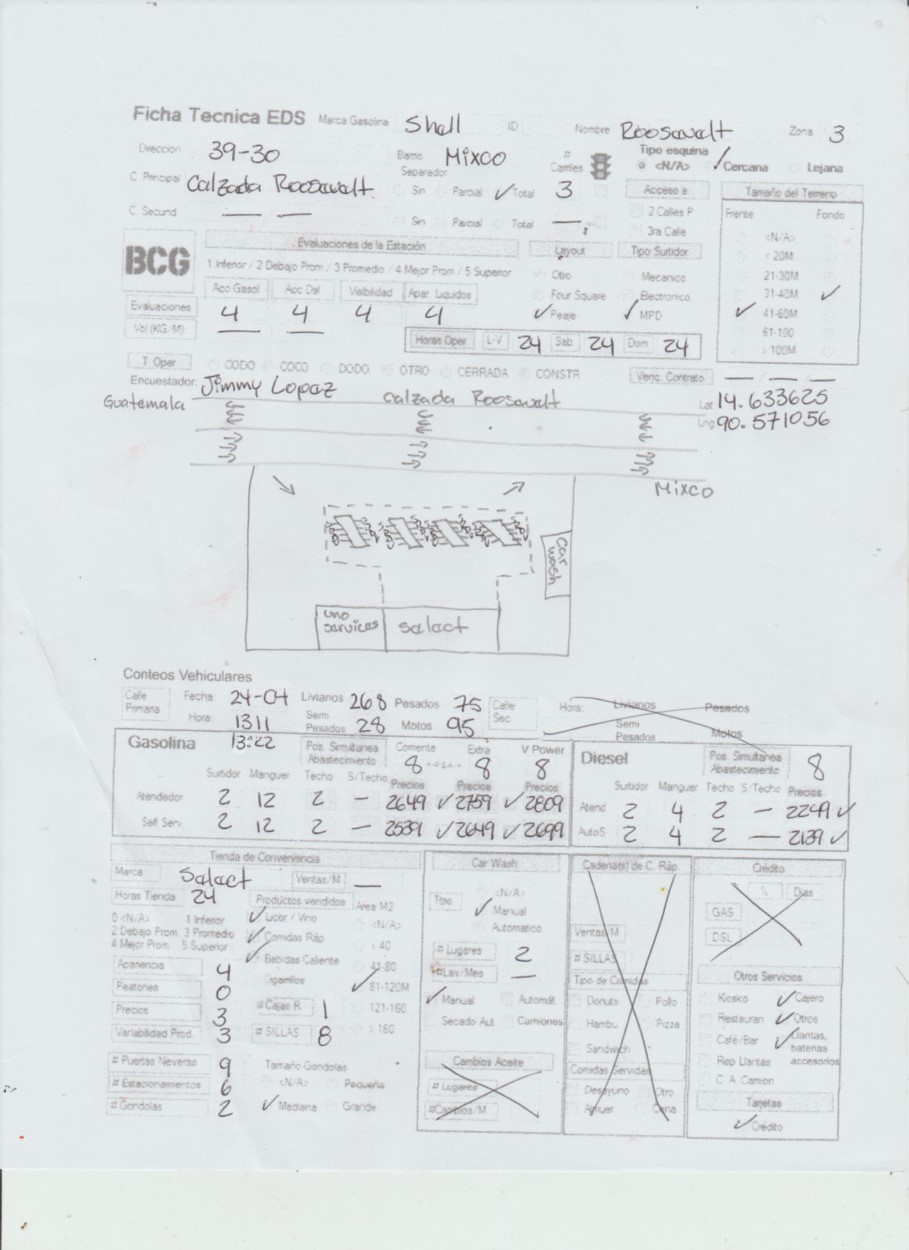 Ficha Tecnica EDS Marca Gasolina Shell ID Nombre Roosavalt Zona 3
Direccion 39-30 Barrio Mixco # Carriles Tipo esquina <N/A> Cercana Lejana
C. Principal Calzada Roosavalt Separador Sin Parcial Total 3 Acceso a: Tamaño del Terreno
C. Secund — — Sin Parcial Total — 2 Calles P Frente Fondo
3ra Calle <N/A>
BCG Evaluaciones de la Estación Layout Tipo Surtidor < 20M
1 Inferior / 2 Debajo Prom / 3 Promedio / 4 Mejor Prom / 5 Superior Otro Mecanico 21-30M
Acc Gasol Acc Dsl Visibilidad Apar. Liquidos Four Square Electronico 31-40M
Evaluaciones 4 4 4 4 Peaje MPD 41-60M
Vol (KG/M) — — Horas Oper L-V 24 Sab 24 Dom 24 61-100
> 100M
T. Oper CODO COCO DODO OTRO CERRADA CONSTR Venc. Contrato — / — / —
Encuestador: Jimmy Lopaz
Guatemala Calzada Roosavalt Lat 14.633625
Lng 90.571056
Mixco
Car wash
uno sarvicas salact
Conteos Vehiculares
Calle Primaria Fecha 24-04 Livianos 268 Pesados 75 Calle Sec Hora: Livianos Pesados
Hora: 1311 Semi Pesados 28 Motos 95 Semi Pesados Motos
Gasolina 13:22 Pos. Simultanea Abastecimiento Corriente 8 Extra 8 V Power 8 Diesel Pos. Simultanea Abastecimiento 8
Surtidor Manguer Techo S/Techo Precios Precios Precios Surtidor Manguer Techo S/Techo Precios
Atendedor 2 12 2 — 2649 ✓ 2759 ✓ 2809 Atend 2 4 2 — 2249 ✓
Self Serv 2 12 2 — 2539 ✓ 2649 ✓ 2699 AutoS 2 4 2 — 2139 ✓
Tienda de Conveniencia Car Wash Cadena(s) de C. Ráp. Crédito
Marca Salact Ventas/M — <N/A> % Dias
Horas Tienda 24 Productos vendidos Area M2 Tipo Manual GAS
0 <N/A> 1 Inferior Licor / Vino <N/A> Automatico Ventas/M DSL
2 Debajo Prom 3 Promedio Comidas Ráp < 40 # Lugares 2 # SILLAS
4 Mejor Prom 5 Superior Bebidas Caliente 41-80 #Lav/Mes — Tipo de Comidas Otros Servicios
Apariencia 4 Cigarrillos 81-120M Manual Automát. Donuts Pollo Kiosko Cajero
Peatones 0 # Cajas R. 1 121-160 Secado Aut Camiones Hambu Pizza Restauran Otros
Precios 3 # SILLAS 8 > 160 Sandwich Café/Bar Llantas, baterias accesorios
Variabilidad Prod. 3 Cambios Aceite Comidas Servidas Rep Llantas
# Puertas Neveras 9 Tamaño Gondolas # Lugares Desayuno Otro C. A. Camion
# Estacionamientos 6 <N/A> Pequeña #Cambios/M Almuer Cena Tarjetas
# Gondolas 2 Mediana Grande Crédito